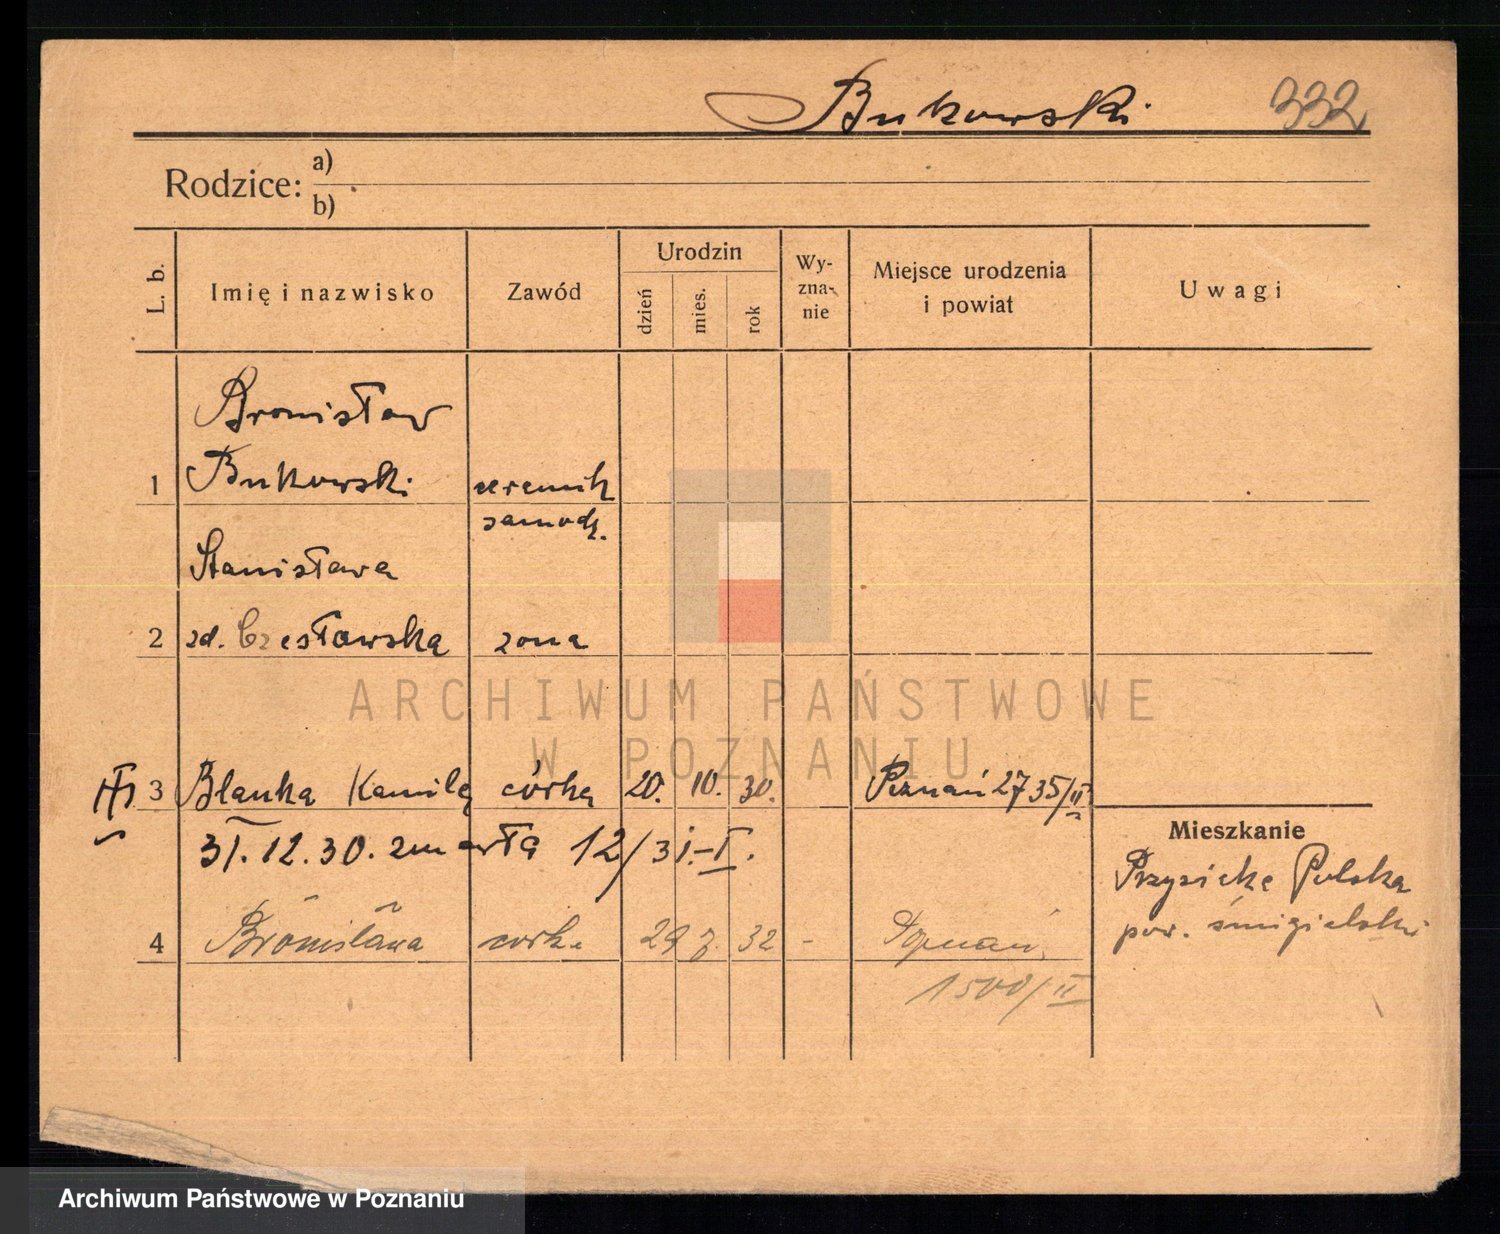 Bukowski 332
Rodzice: a)
b)
L. b. Imię i nazwisko Zawód Urodzin dzień mies. rok Wy-zna-nie Miejsce urodzenia i powiat Uwagi
Bronisław
1 Bukowski ceramik
samodz.
Stanisława
2 zd. Czesławska żona
3 Blanka Kamila córka 20. 10. 30. Poznań 2735/II
31.12.30. zmarła 12/31.-I.
Mieszkanie
Przysieka Polska
pow. śmigielski
4 Bronisława córka 29 7. 32 - Poznań
1500/II
ARCHIWUM PAŃSTWOWE
W POZNANIU
Archiwum Państwowe w Poznaniu